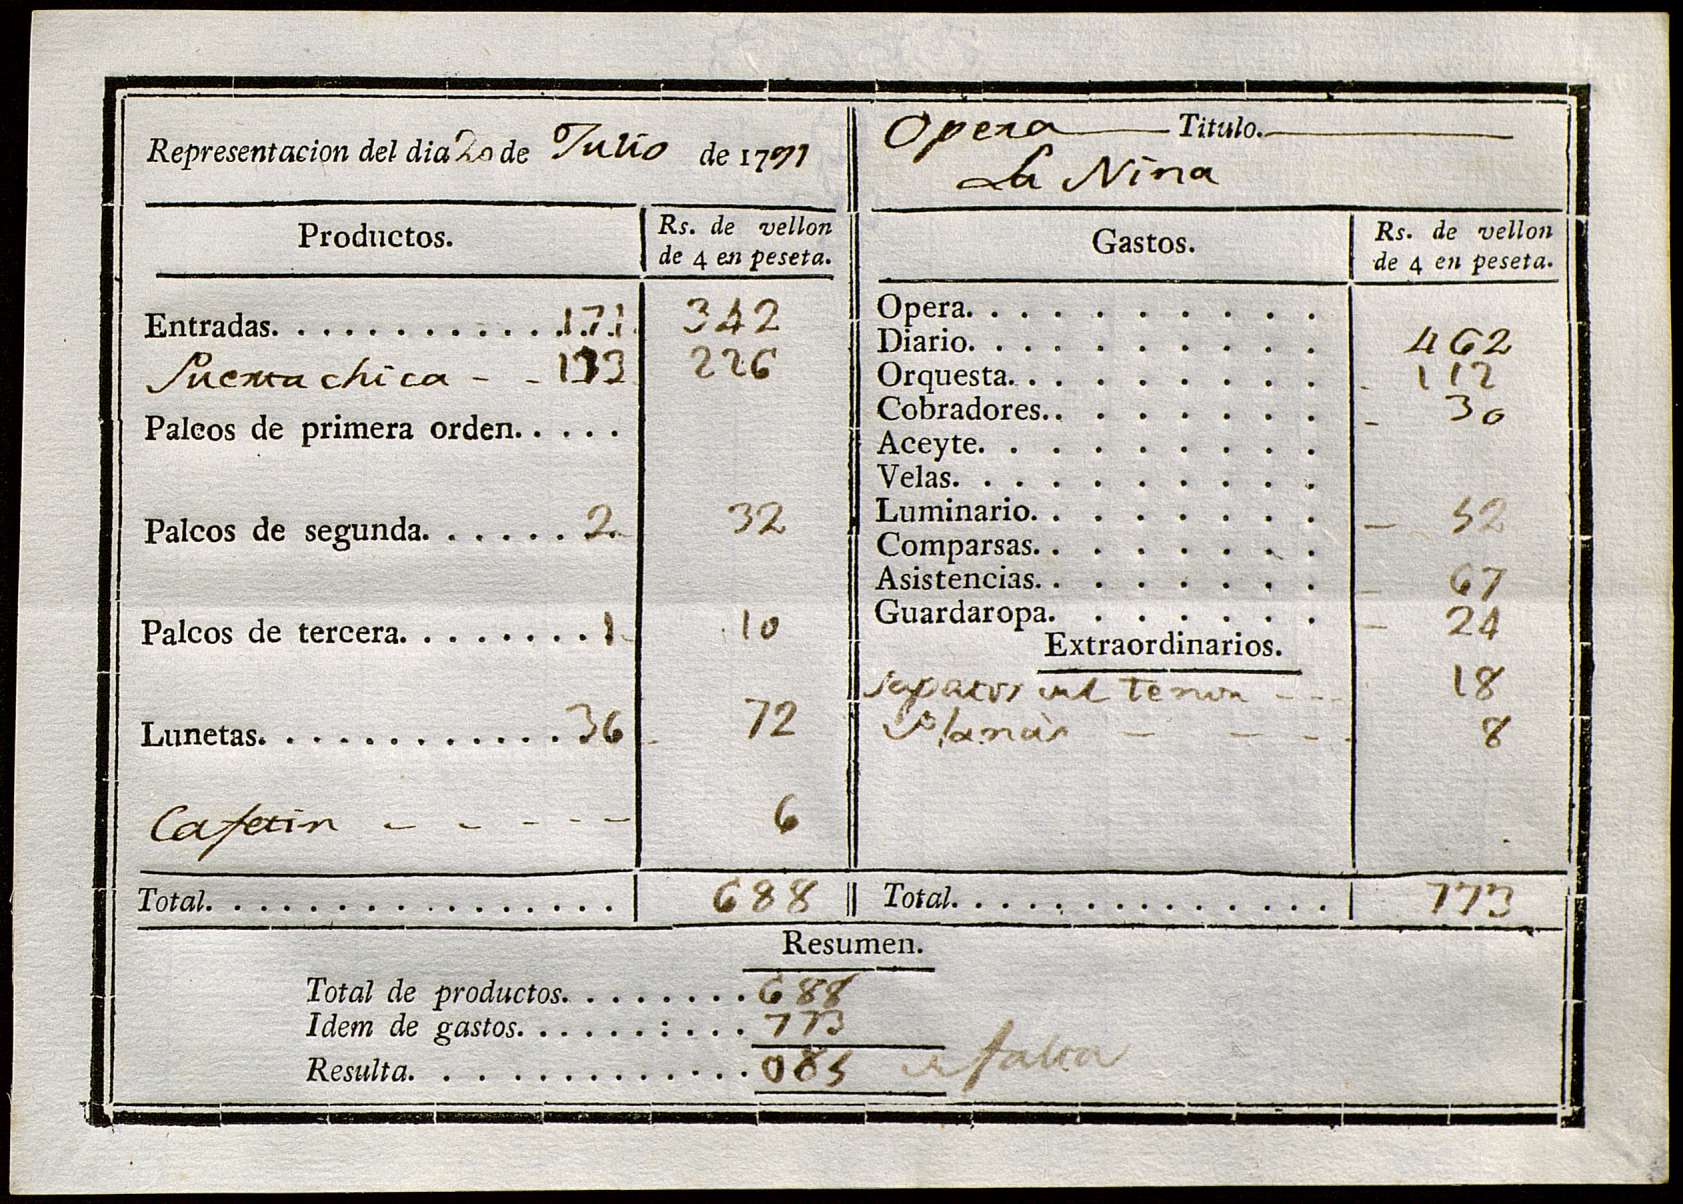 Representacion del dia 20 de Julio de 1791
Productos.
Rs. de vellon
de 4 en peseta.
Entradas. . . . . . . . . . . . 171 342
Puerta chica - - 113 226
Palcos de primera orden. . . . .
Palcos de segunda. . . . . . 2 32
Palcos de tercera. . . . . . . . 1 10
Lunetas. . . . . . . . . . . . 36 72
Cafetin - - - - - 6
Total. . . . . . . . . . . . . . . . 688
Opera Titulo.
La Nina
Gastos.
Rs. de vellon
de 4 en peseta.
Opera. . . . . . . . . .
Diario. . . . . . . . . . 462
Orquesta. . . . . . . . . 112
Cobradores. . . . . . . . 30
Aceyte. . . . . . . . .
Velas. . . . . . . . . .
Luminario. . . . . . . . 52
Comparsas. . . . . . . .
Asistencias. . . . . . . . 67
Guardaropa. . . . . . . 24
Extraordinarios.
sapatos tenor - - - 18
8
Total. . . . . . . . . . . . . . . 773
Resumen.
Total de productos. . . . . . . . 688
Idem de gastos. . . . . . : . . . 773
Resulta. . . . . . . . . . . . . . 085 falta